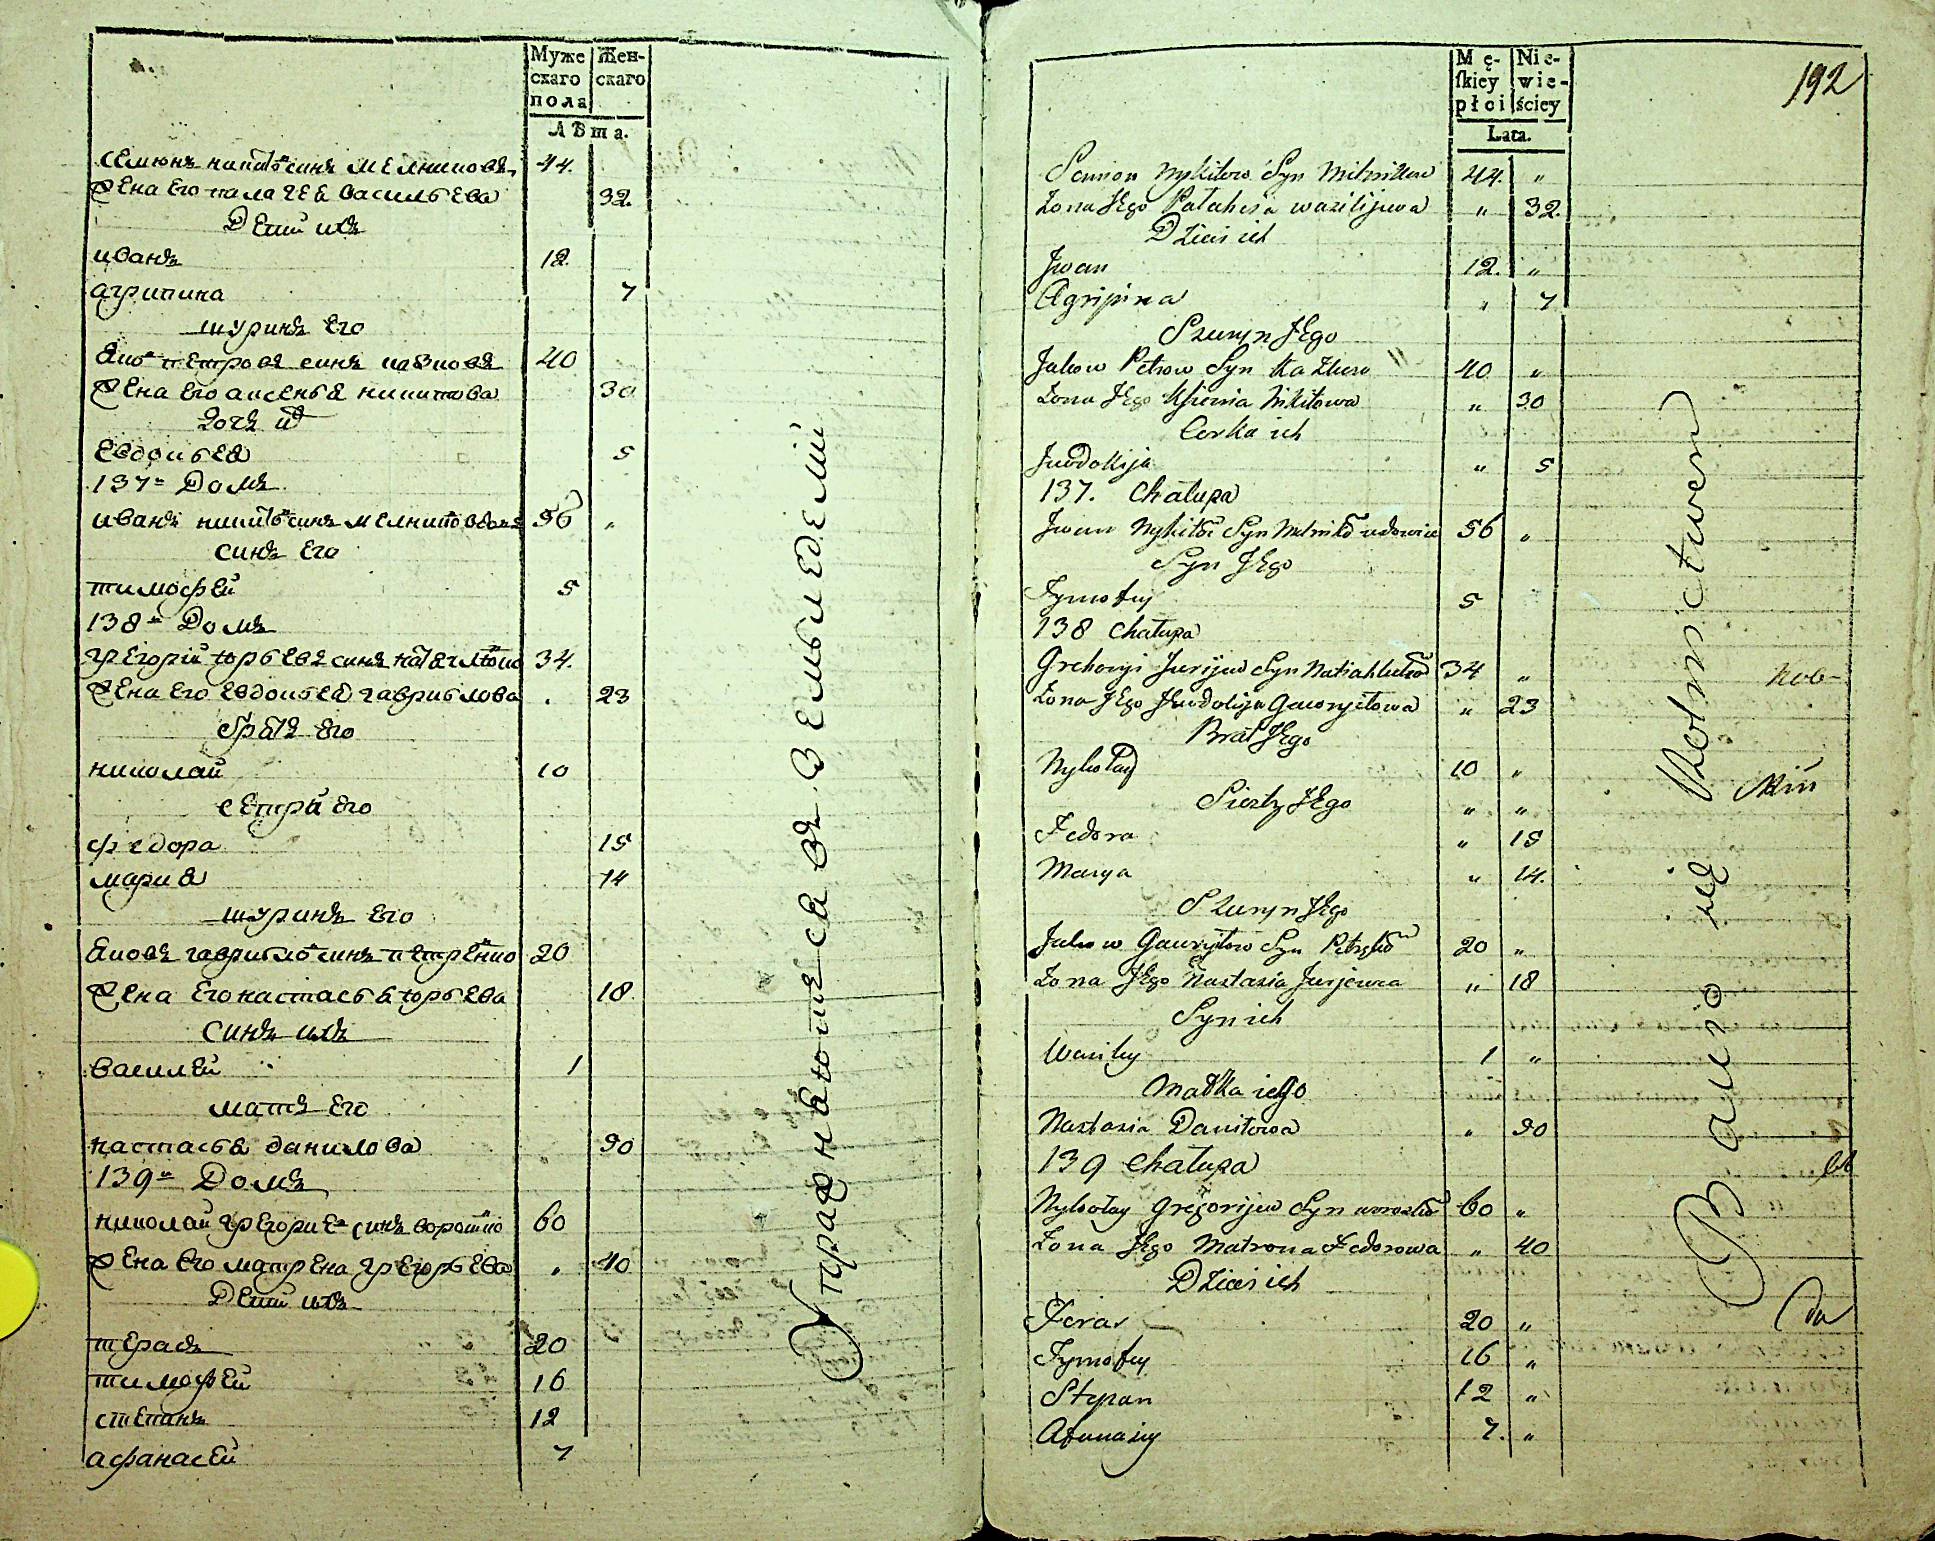 Муже
скаго
пола
Жен-
скаго
Лѣта.
семионъ никитовъ синъ мелниковъ 44.
жена его палагея васильева 32.
Дети ихъ
иванъ 12.
агрипина 7
шуринъ его
яковъ петровъ синъ
40
жена его аксенья никитова 30
дочь их
евдокья 5
137й Домъ
иванъ никитовъ синъ мелников 56 "
синъ его
тимофей 5
138й Домъ
григорій юрьевъ синъ 34.
жена его евдокья гаврилова . 23
братъ его
николай 10
сестри его
федора 15
мария 14
шуринъ его
яковъ гаврилов синъ петренко 20
жена его настасья юрьева 18.
синъ ихъ
василей 1
мать его
настасья данилова " 90
139й Домъ
николай григориев синъ 60
жена его матрена григорьева " 40
Дети ихъ
терасъ 20
тимофей 16
степанъ 12
афанасей 7
Упражняются въ земледелій
192
Mę-
skiey
płci
Nie-
wie-
ściey
Lata.
Semion Nykitow Syn Milnikow 44. "
Żona Jego Pałaheia wasilijewa " 32.
Dzieci ich
Jwan 12. "
Agripina " 7
Szuryn Jego
Jakow Petrow Syn 40 "
Żona Jego Xsienia Nikitowa " 30
Corka ich
Jwdokija " 5
137. Chałupa
Jwan Nykitow Syn Melnikow udowiec 56 "
Syn Jego
Tymofiy 5
138 chałupa
Grehoryi Jurijew Syn 34 "
Żona Jego Jewdokija Gawryłowa " 23
Brat Jego
Nykołay 10 "
Siostry Jego " "
Fedora " 15
Marya " 14.
Szuryn Jego
Jakow Gawryłow Syn 20 "
Żona Jego Nastazia Jurjewa " 18
Syn ich
Wasiley 1 "
Matka iego
Nastazia Daniłowa " 90
139 chałupa
Nykołay Gregorijew Syn 60 "
Żona Jego Matrona Fedorowa " 40
Dzieci ich
Teras 20 "
Tymofiy 16 "
Stepan 12 "
Afanasiy 7. "
Bawio się Rolnictwem